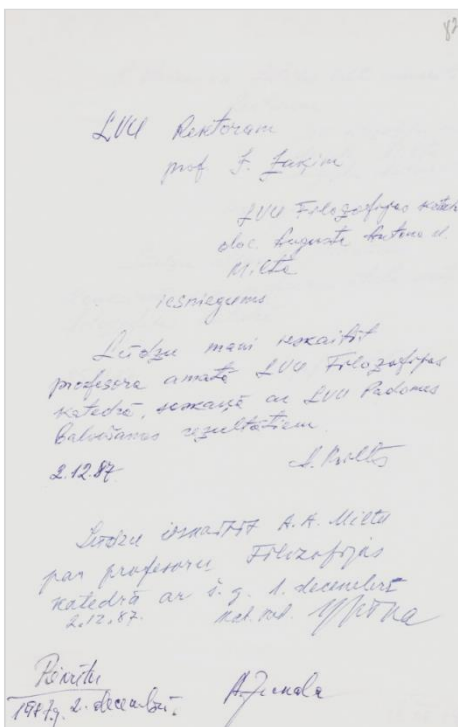 82
LVU Rektoram
prof. J. Zaķim
LVU Filozofijas kated
doc. Augusta Antona d.
Milta
iesniegums
Lūdzu mani ieskaitīt
profesora amatā LVU Filozofijas
katedrā, saskaņā ar LVU Padomes
balsošanas rezultātiem.
2.12.87. A. Milts
Lūdzu ieskaitīt A.A. Miltu
par profesoru Filozofijas
katedrā ar š.g. 1. decembri
2.12.87. kat. vad.
Piekrītu
1987.g. 2. decembrī.